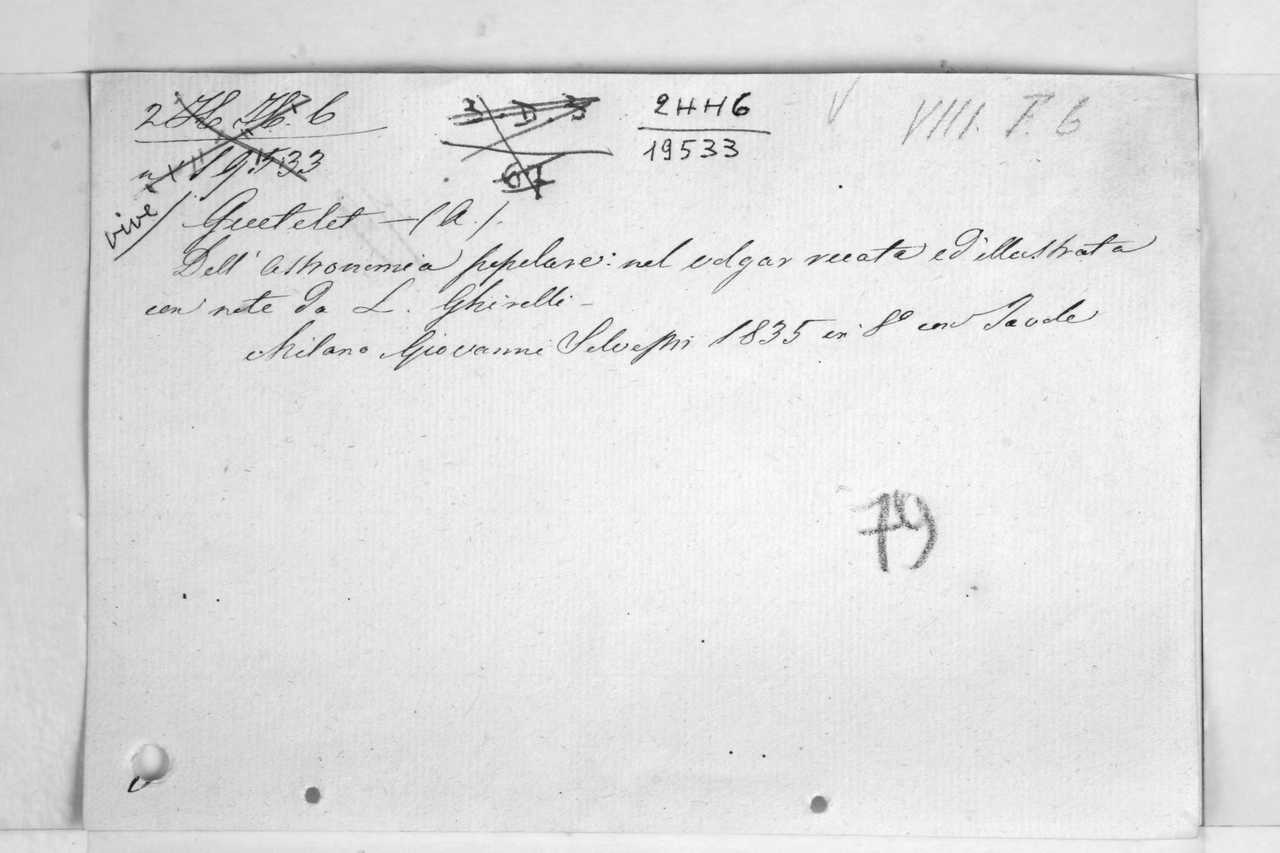 2 HH. 6
19533
3. D. 3
67
2HH6
19533
V
VIII. F. 6
vive
Quetelet — (A.).
Dell' astronomia popolare: nel volgar recata ed illustrata
con note da L. Ghirelli —
Milano Giovanni Silvestri 1835 in 8º con Tavole
79